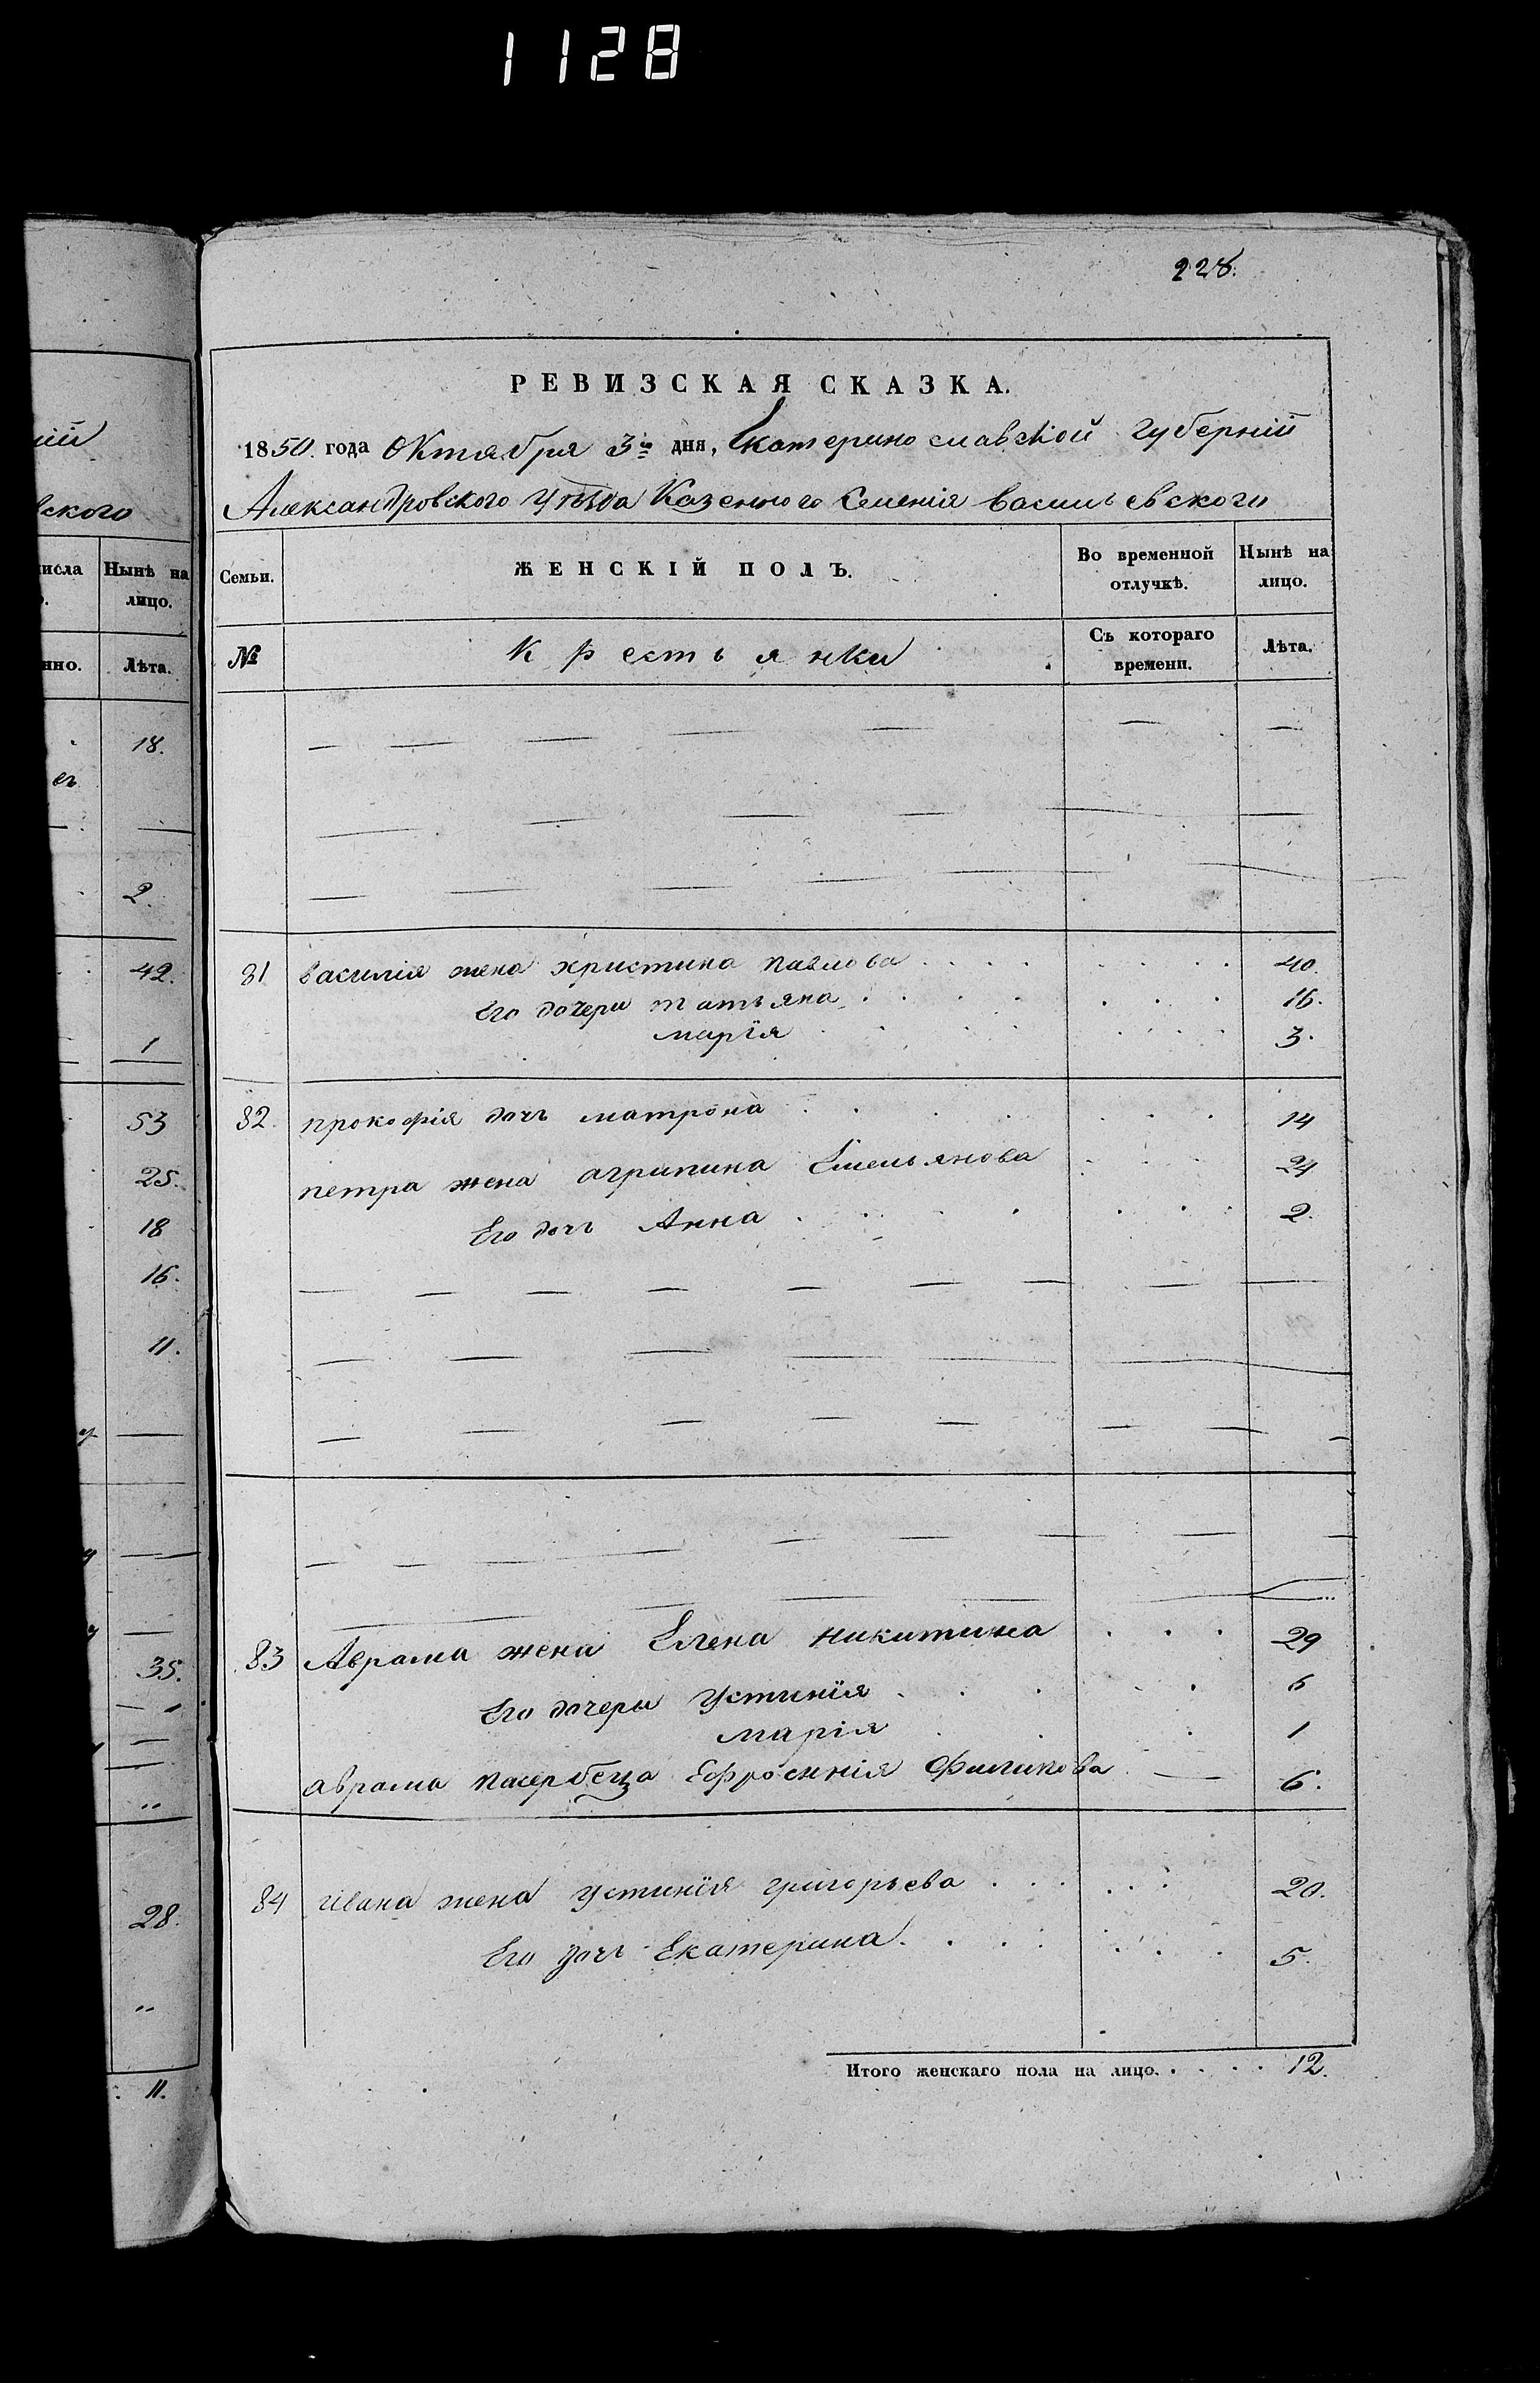 1128
228.
нисла Нынѣ на
лицо.
Лѣта.
18.
2.
42.
1
53
25.
18
16.
11.
35.
28.
11.
РЕВИЗСКАЯ СКАЗКА.
1850. года Октября 3го дня, Екатеринославской Губерніи
Александровского Уѣзда Казенного Селенія Васильевского
Семьи. ЖЕНСКІЙ ПОЛЪ. Во временной отлучкѣ. Нынѣ на лицо.
№ Крестьянки Съ котораго времени. Лѣта.
81 Василія жена Христина Павлова 40.
Его дочери Татьяна 16.
Марія 3.
82. Прокофія дочь Матрона 14
Петра жена Агрипина Емельянова 24
Его дочь Анна 2.
83 Аврама жена Елена Никитина 29
Его дочери Устинія 6
Марія 1
Аврама пасербеца Ефросинія Филипова 6.
84 Ивана жена Устинія Григорьева 20.
Его дочь Екатерина 5.
Итого женскаго пола на лицо. 12.